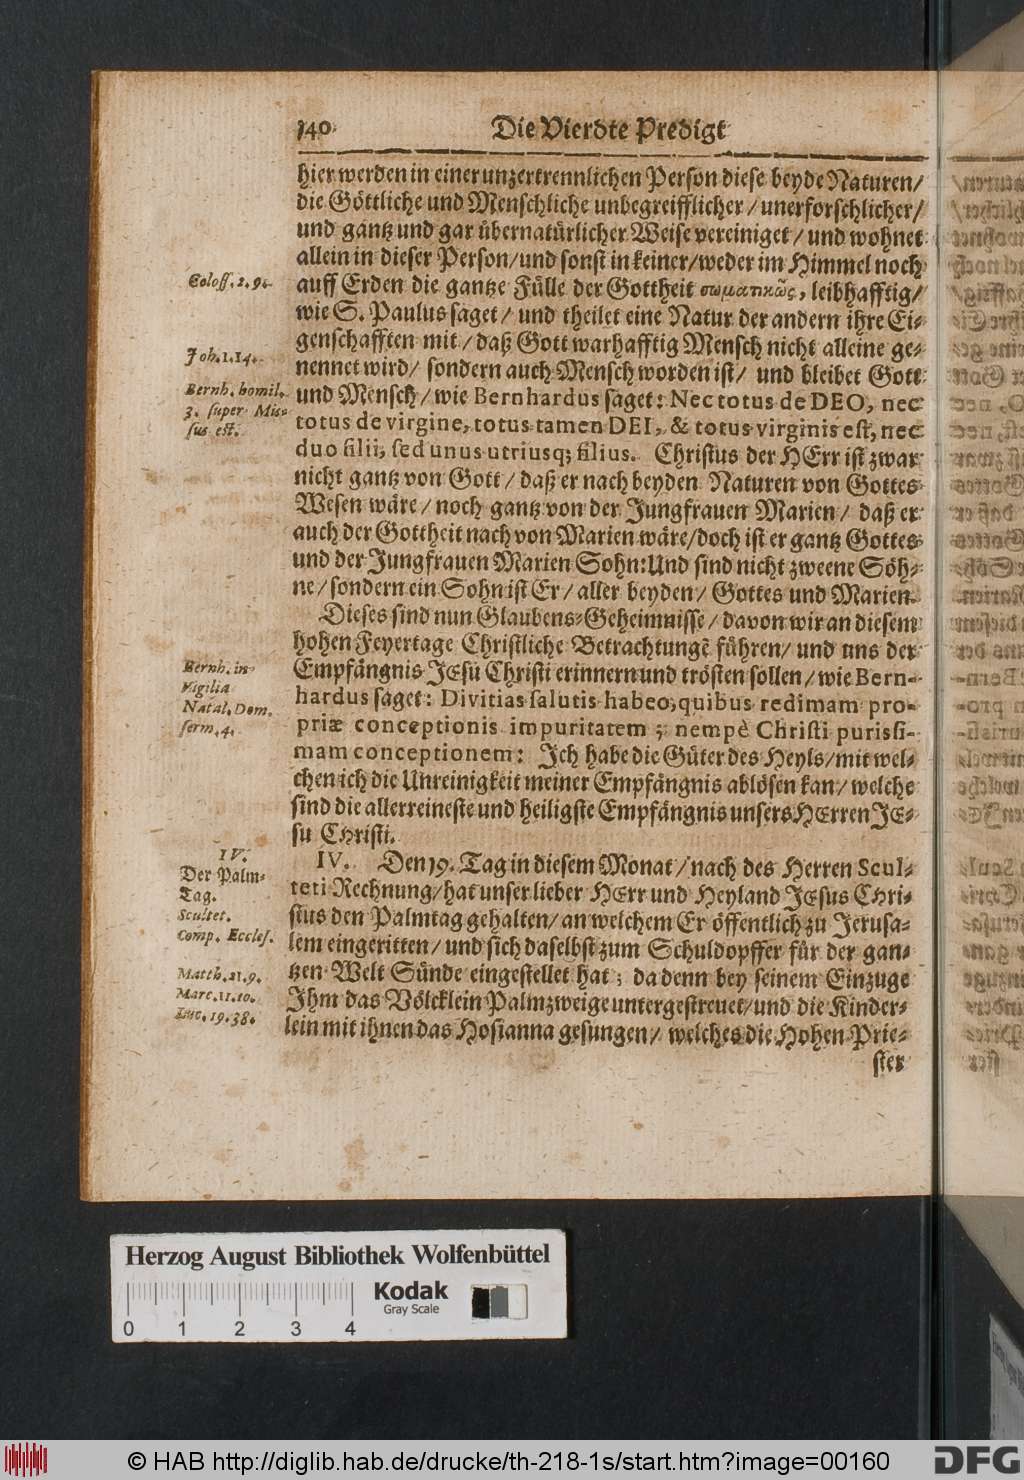 140.
Die Vierdte Predigt
hier werden in einer unzertrennlichen Person diese beyde Naturen/
die Göttliche und Menschliche unbegreifflicher / unerforschlicher/
und gantz und gar übernatürlicher Weise vereiniget / und wohnet
allein in dieser Person/und sonst in keiner/weder im Himmel noch
Coloss. 2. 9.
auff Erden die gantze Fülle der Gottheit σωματικῶς, leibhafftig/
wie S. Paulus saget/ und theilet eine Natur der andern ihre Ei-
genschafften mit / daß Gott warhafftig Mensch nicht alleine ge-
Joh. 1. 14.
nennet wird/ sondern auch Mensch worden ist/ und bleibet Gott
Bernh. homil.
3. super Mis-
sus est.
und Mensch/ wie Bernhardus saget: Nec totus de DEO, nec
totus de virgine, totus tamen DEI, & totus virginis est, nec
duo filii, sed unus utriusq; filius. Christus der HErr ist zwar
nicht gantz von Gott / daß er nach beyden Naturen von Gottes
Wesen wäre / noch gantz von der Jungfrauen Marien / daß er
auch der Gottheit nach von Marien wäre/doch ist er gantz Gottes
und der Jungfrauen Marien Sohn: Und sind nicht zweene Söh-
ne / sondern ein Sohn ist Er / aller beyden / Gottes und Marien.
Dieses sind nun Glaubens-Geheimnisse / davon wir an diesem
hohen Feyertage Christliche Betrachtungẽ führen/ und uns der
Bernh. in
Vigilia
Natal. Dom.
serm. 4.
Empfängnis JEsu Christi erinnern und trösten sollen / wie Bern-
hardus saget: Divitias salutis habeo, quibus redimam pro-
priæ conceptionis impuritatem ; nempè Christi purissi-
mam conceptionem: Ich habe die Güter des Heyls/ mit wel-
chen ich die Unreinigkeit meiner Empfängnis ablösen kan/ welche
sind die allerreineste und heiligste Empfängnis unsers HErren JE-
su Christi.
IV.
Der Palm-
Tag.
Scultet.
Comp. Eccles.
IV. Den 19. Tag in diesem Monat / nach des Herren Scul-
teti Rechnung/ hat unser lieber HErr und Heyland JEsus Chri-
stus den Palmtag gehalten/ an welchem Er öffentlich zu Jerusa-
lem eingeritten / und sich daselbst zum Schuldopffer für der gan-
Matth. 21. 9.
Marc. 11. 10.
Luc. 19. 38.
tzen Welt Sünde eingestellet hat ; da denn bey seinem Einzuge
Ihm das Völcklein Palmzweige untergestreuet/und die Kinder-
lein mit ihnen das Hosianna gesungen/ welches die Hohen-Prie-
ster
Herzog August Bibliothek Wolfenbüttel
Kodak
Gray Scale
0 1 2 3 4
© HAB http://diglib.hab.de/drucke/th-218-1s/start.htm?image=00160
DFG